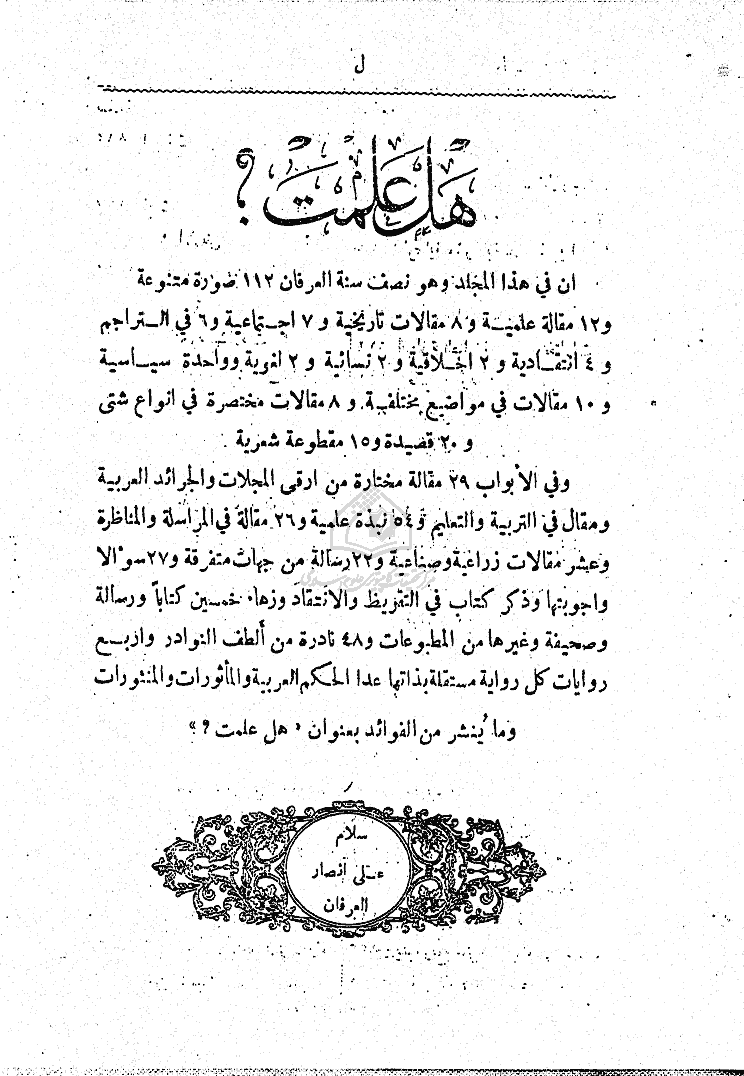 ل
هل علمت؟
ان في هذا المجلد وهو نصف سنة العرفان ١١٢ صورة متنوعة
و١٢ مقالة علمية و ٨ مقالات تاريخية و ٧ اجتماعية و٦ في التراجم
و ٤ انتقادية و ٢ اخلاقية و ٢ نسائية و ٢ لغوية وواحدة سياسية
و ١٠ مقالات في مواضيع مختلفة و ٨ مقالات مختصرة في انواع شتى
و ٢٠ قصيدة و١٥ مقطوعة شعرية
وفي الأبواب ٢٩ مقالة مختارة من ارقى المجلات والجرائد العربية
ومقال في التربية والتعليم و٥٤ نبذة علمية و٢٦ مقالة في المراسلة والمناظرة
وعشر مقالات زراعية وصناعية و٢٢ رسالة من جهات متفرقة و٢٧ سوءالا
واجوبتها وذكر كتاب في التقريظ والانتقاد وزهاء خمسين كتاباً ورسالة
وصحيفة وغيرها من المطبوعات و٤٨ نادرة من ألطف النوادر واربع
روايات كل رواية مستقلة بذاتها عدا الحكم العربية والمأثورات والمنثورات
وما يُنشر من الفوائد بعنوان «هل علمت ؟»
سلام
على انصار
العرفان